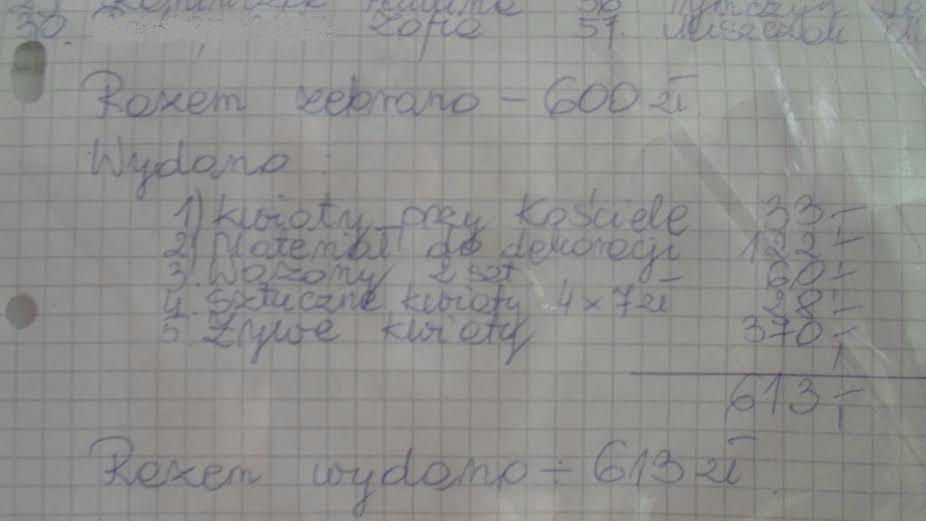 30. Zofia 57.
Razem zebrano - 600 zł
Wydano :
1) kwiaty przy Kościele 33,-
2) Materiał do dekoracji 122,-
3. Wazony 2 szt 60,-
4. Sztuczne kwiaty 4 x 7 zł 28,-
5. Żywe kwiaty 370,-
613,-
Razem wydano - 613 zł